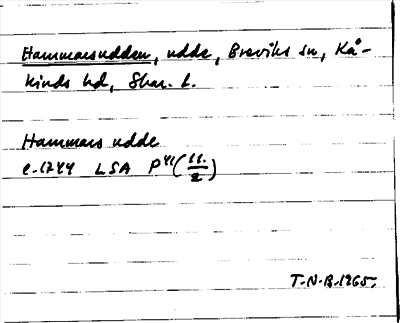 Hammarsudden, udde, Breviks sn, Kå-
kinds hd, Skar. l.
Hammars udde
c. 1744 LSA P41 (11./2)
T.N.B. 1965.